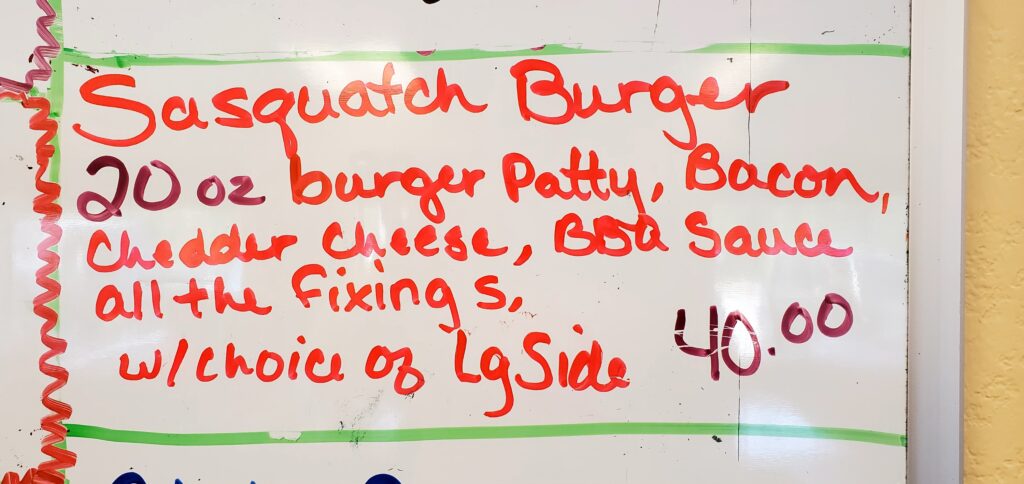 Sasquatch Burger
20 oz burger Patty, Bacon,
Chedder Cheese, BBQ Sauce
all the Fixings,
w/choice of Lg Side 40.00